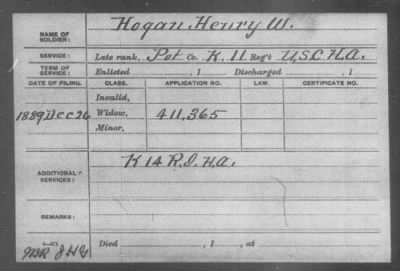 NAME OF SOLDIER: Hogan, Henry W.
SERVICE: Late rank, Pvt Co. K, 11 Reg't U.S.C.H.A.
TERM OF SERVICE: Enlisted , 1 Discharged , 1
DATE OF FILING. CLASS. APPLICATION NO. LAW. CERTIFICATE NO.
Invalid,
1889 Dec 26 Widow, 411,365
Minor,
ADDITIONAL SERVICES: K 14 R.I. H.A.
REMARKS:
Died , 1 , at